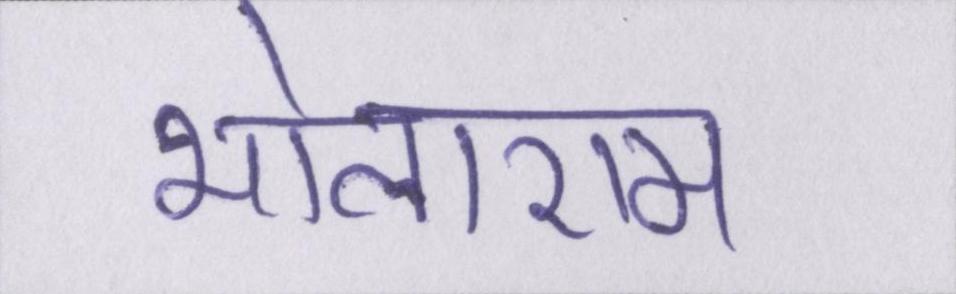 भोलाराम